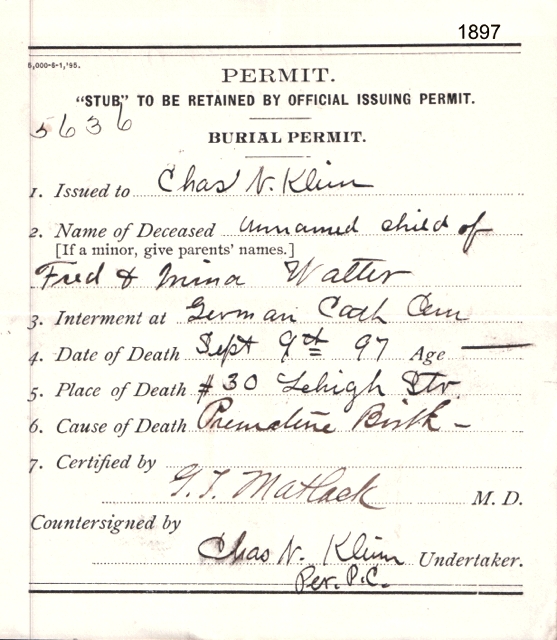 1897
5,000-6-1,'95.
PERMIT.
"STUB" TO BE RETAINED BY OFFICIAL ISSUING PERMIT.
5636
BURIAL PERMIT.
1. Issued to Chas N. Klein
2. Name of Deceased unnamed child of
[If a minor, give parents' names.]
Fred & Mina Walter
3. Interment at German Cath Cem
4. Date of Death Sept 9th 97 Age —
5. Place of Death #30 Lehigh Str.
6. Cause of Death Premature Birth -
7. Certified by
G. T. Matlack M. D.
Countersigned by
Chas N. Klein Undertaker.
Per. P.C.